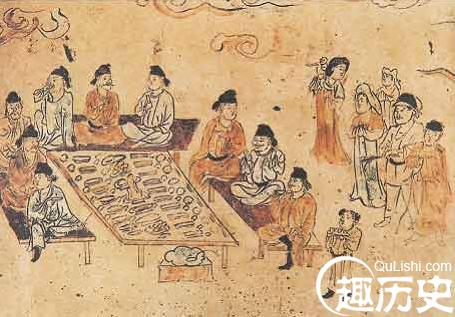 QuLishi.com
趣历史